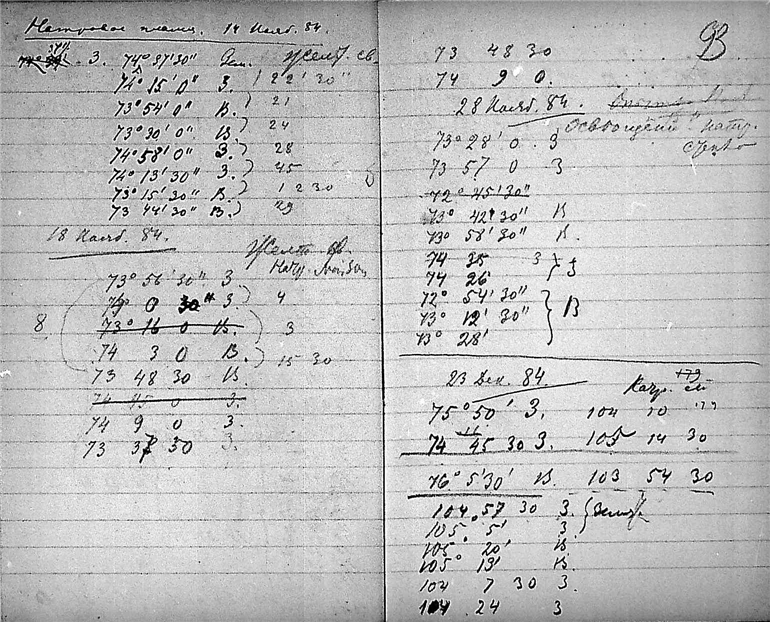 Натровое пламя. 14 Нояб. 84.
З. 74° 37'30" Желт. св.
74° 15' 0" З. 1 22' 30"
73° 54' 0" В. 21
73° 30' 0" В. 24
74° 58' 0" З. 28
74° 13' 30" З. 45
73° 15' 30" В. 1 2 30
73 44' 30" В. 29
18 Нояб. 84.
Желт. св.
Натр.
73° 56' 30" З.
0 30" З. 4
8 73° 16 0 В. 3
74 3 0 В. 15 30
73 48 30 В.
74 45 0 З.
74 9 0 З.
73 37 30 З.
93
73 48 30
74 9 0.
28 Нояб. 84.
Освещение натр.
73° 28' 0 З
73 57 0 З
72° 45' 30"
73° 42' 30" В
73° 58' 30" В.
74 35 З
74 26'
72° 54' 30"
73° 12' 30" В
73° 28'
23 Дек. 84. Натр.
75° 50' З. 104 10
74 45 30 З. 105 14 30
76° 5' 30' В. 103 54 30
104 57 30 З.
105° 5' З
105° 20' В
105° 13' В
104 7 30 З.
104 24 З